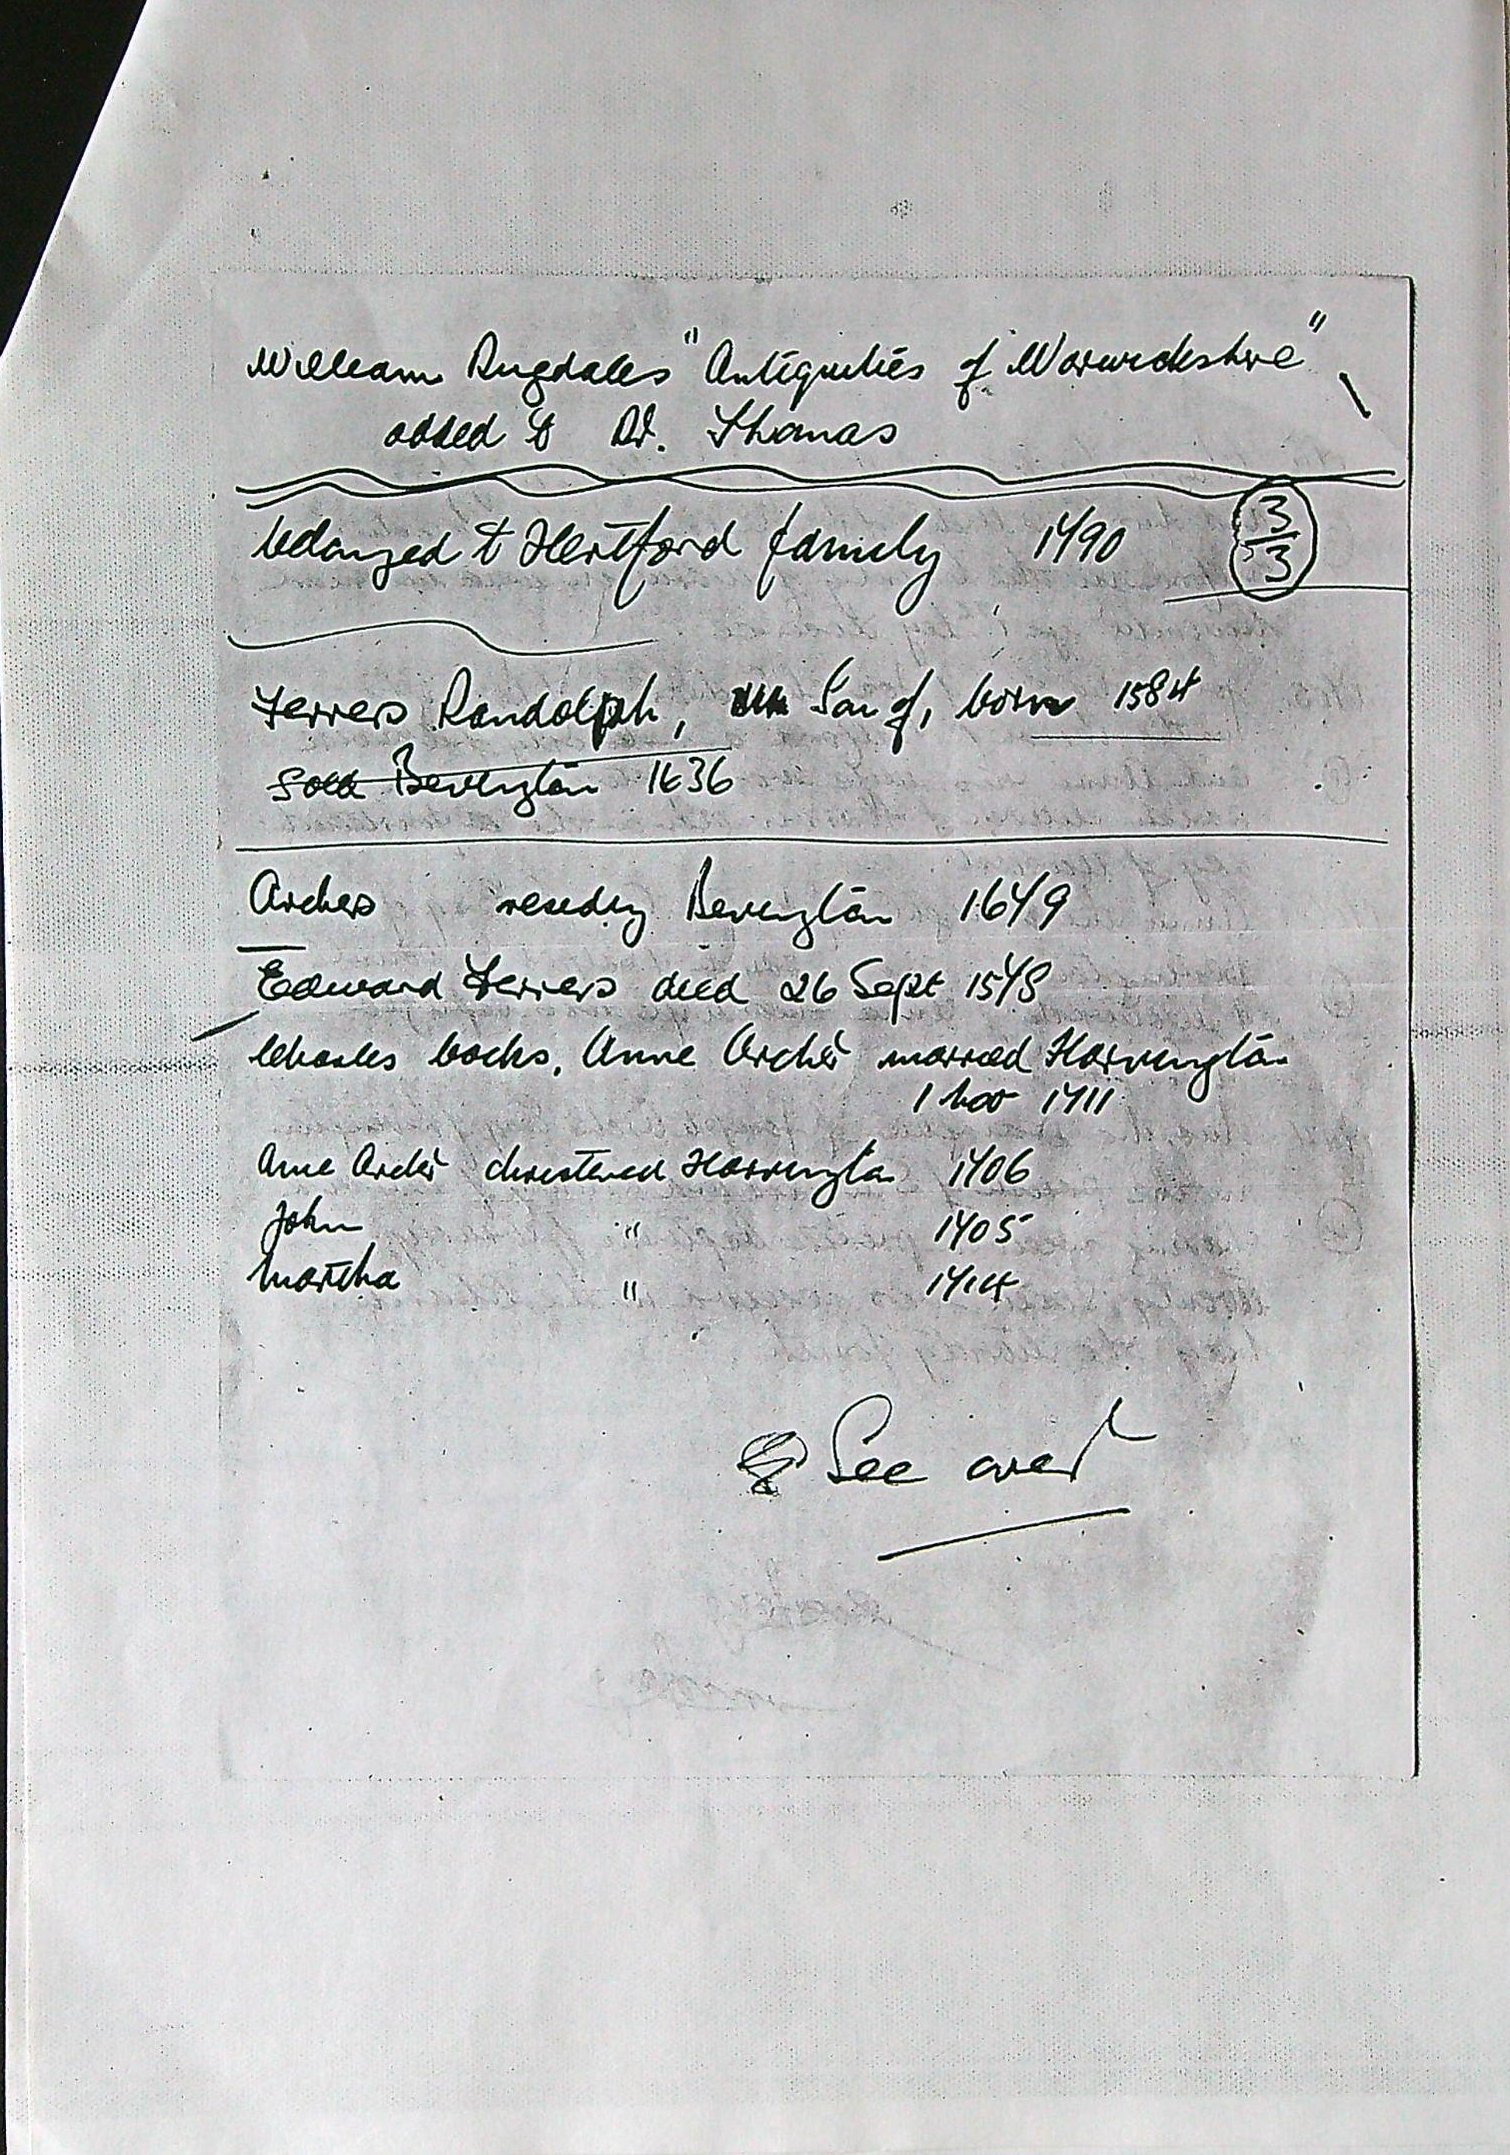 William Dugdales "Antiquities of Warwickshire"
added to Dr. Thomas
belonged to Hertford family 1790
3/3
Ferrers Randolph, Son of, born 1584
sold Bevington 1636
Archers residing Bevington 1679
Edward Ferrers died 26 Sept 1578
Charles Cocks, Anne Archer married Harvington
1 Nov 1711
Anne Archer christened Harvington 1706
John " 1705
Martha " 1714
See over